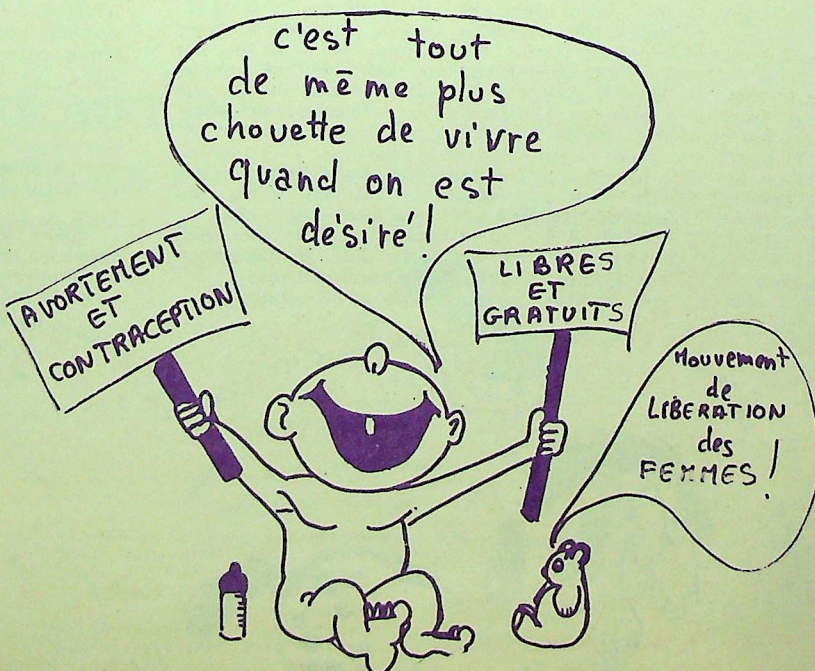 c'est tout
de même plus
chouette de vivre
quand on est
désiré!
AVORTEMENT
ET
CONTRACEPTION
LIBRES
ET
GRATUITS
Mouvement
de
LIBERATION
des
FEMMES!